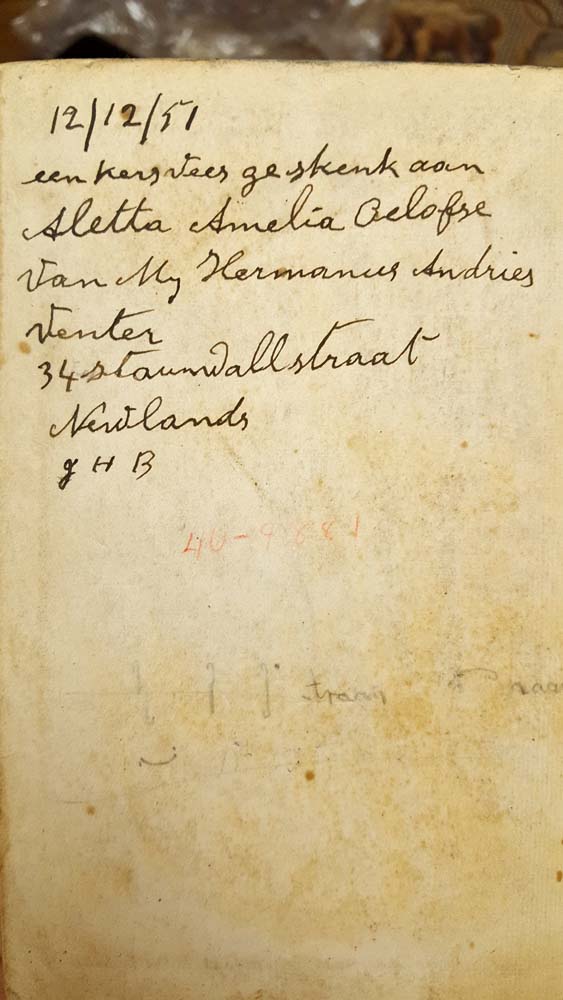 12/12/51
een kersvees geskenk aan
Aletta Amelia Oelofse
Van My Hermanus Andries
Venter
34 staunwall straat
Newlands
g H B
40-9881